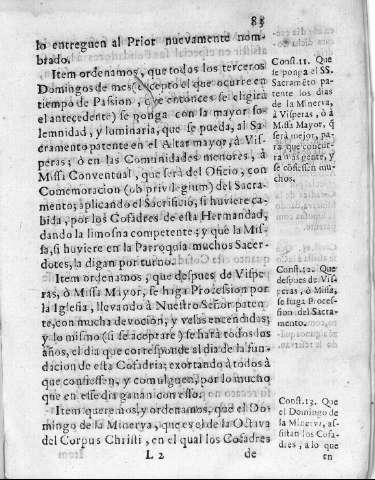 83
lo entreguen al Prior nuevamente nom-
brado.
Item ordenamos, que todos los terceros
Domingos de mes (excepto el que ocurre en
tiempo de Passion, que entonces se eligirà
el antecedente) se ponga con la mayor so-
lemnidad, y luminaria, que se pueda, al Sa-
cramento patente en el Altar mayor, à Vis-
peras; ò en las Comunidades menores, à
Missa Conventual, que serà del Oficio, con
Comemoracion (ob privilegium) del Sacra-
mento; aplicando el Sacrificio, si huviere ca-
bida, por los Cofadres de esta Hermandad,
dando la limosna competente; y que la Mis-
sa, si huviere en la Parroquia muchos Sacer-
dotes, la digan por turno.
Item ordenamos, que despues de Vispe-
ras, ò Missa Mayor, se haga Procession por
la Iglesia, llevando à Nuestro Señor paten-
te, con mucha devocion, y velas encendidas;
y lo mismo (si se aceptare) se harà todos los
años, el dia que corresponde al dia de la fun-
dacion de esta Cofadria; exortando à todos à
que confiessen, y comulguen, por lo mucho
que en esse dia ganan con esso.
Item queremos, y ordenamos, que el Do-
mingo de la Minerva, que es el de la Octava
del Corpus Christi, en el qual los Cofadres
L 2
de
Const. 11. Que
se ponga el SS.
Sacramẽto pa-
tente los dias
de la Minerva,
à Visperas, ò à
Missa Mayor, q̃
serà mejor, pa-
ra que concur-
ran mas gente, y
se confiessen mu-
chos.
Const. 12. Que
despues de Vis-
peras, ò Missa,
se haga Proces-
sion del Sacra-
mento.
Const. 13. Que
el Domingo de
la Minerva, as-
sistan los Cofa-
dres, à lo que
en